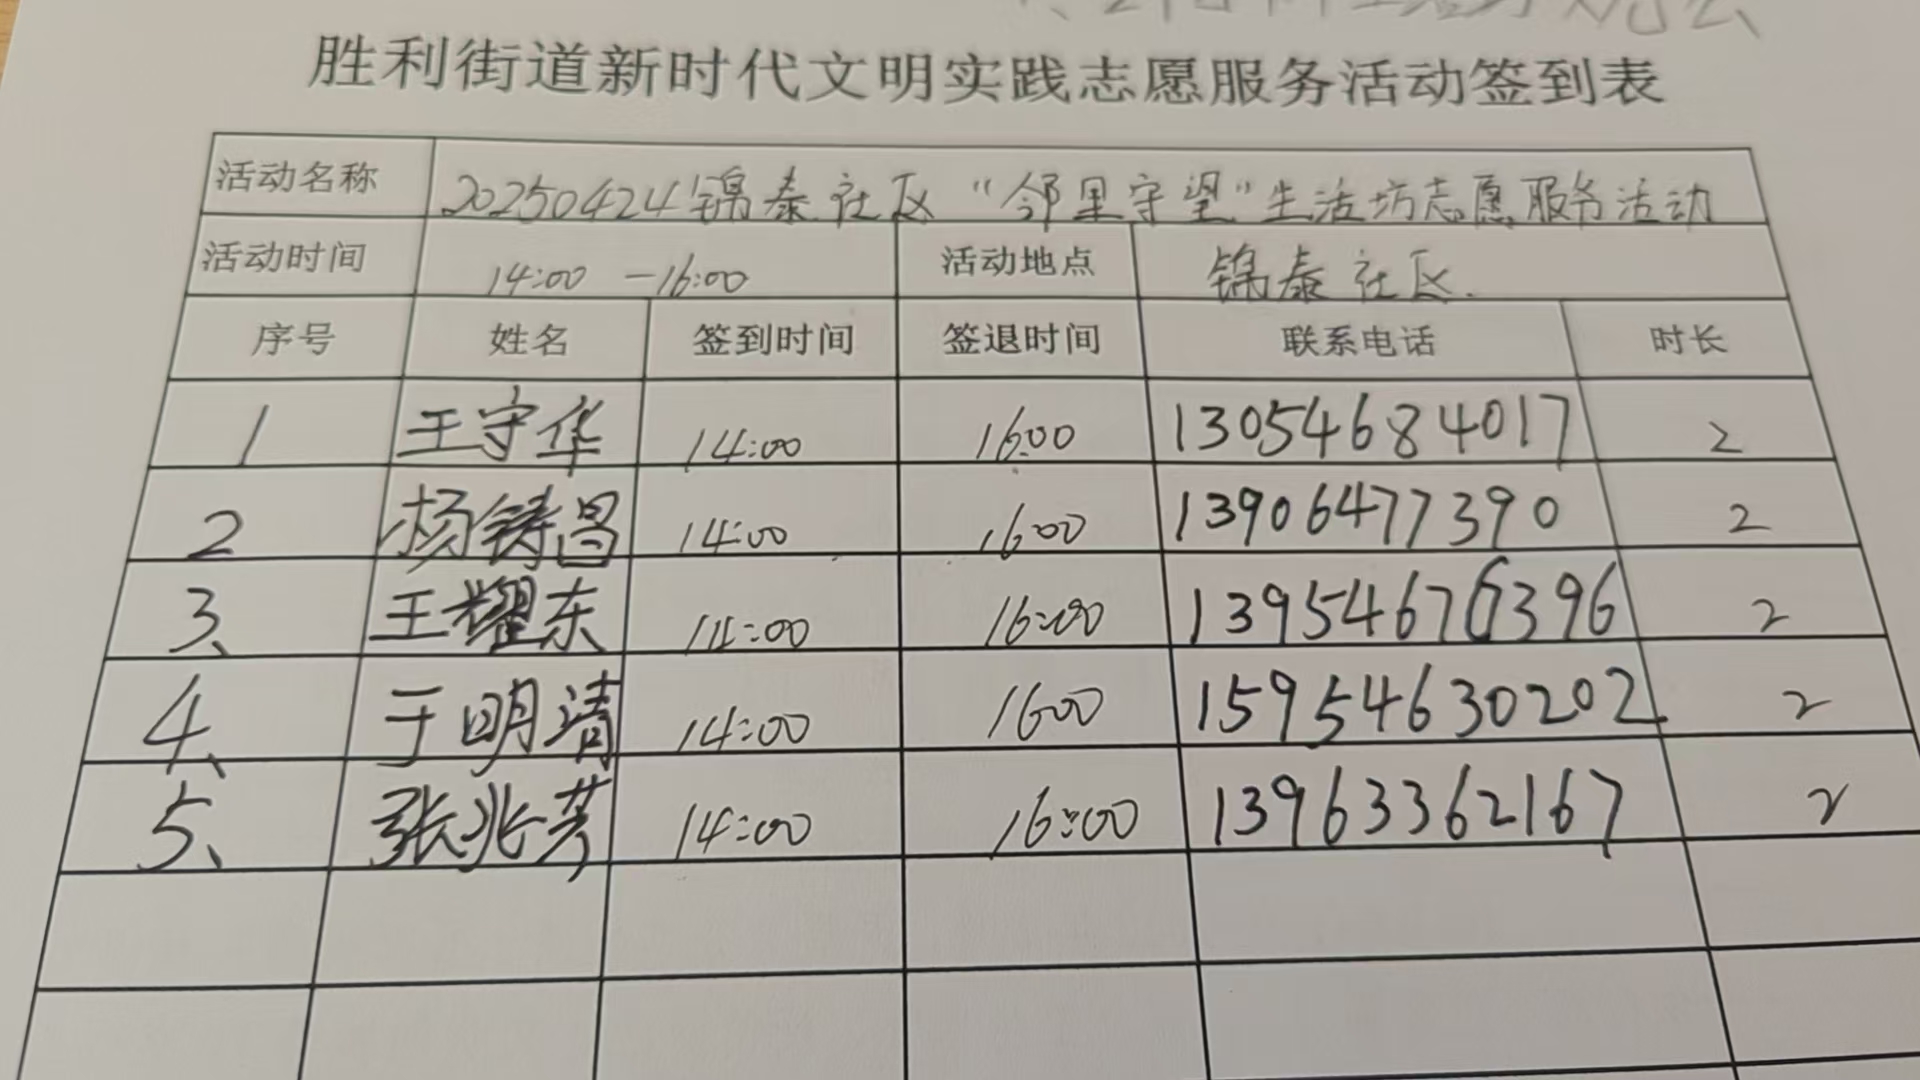 胜利街道新时代文明实践志愿服务活动签到表
活动名称 20250424锦泰社区“邻里守望”生活坊志愿服务活动
活动时间 14:00 -16:00 活动地点 锦泰社区.
序号 姓名 签到时间 签退时间 联系电话 时长
1 王守华 14:00 16:00 13054684017 2
2 杨铸昌 14:00 16:00 13906477390 2
3、 王耀东 14:00 16:00 13954676396 2
4、 于明清 14:00 1600 15954630202 2
5、 张兆芳 14:00 16:00 13963362167 2